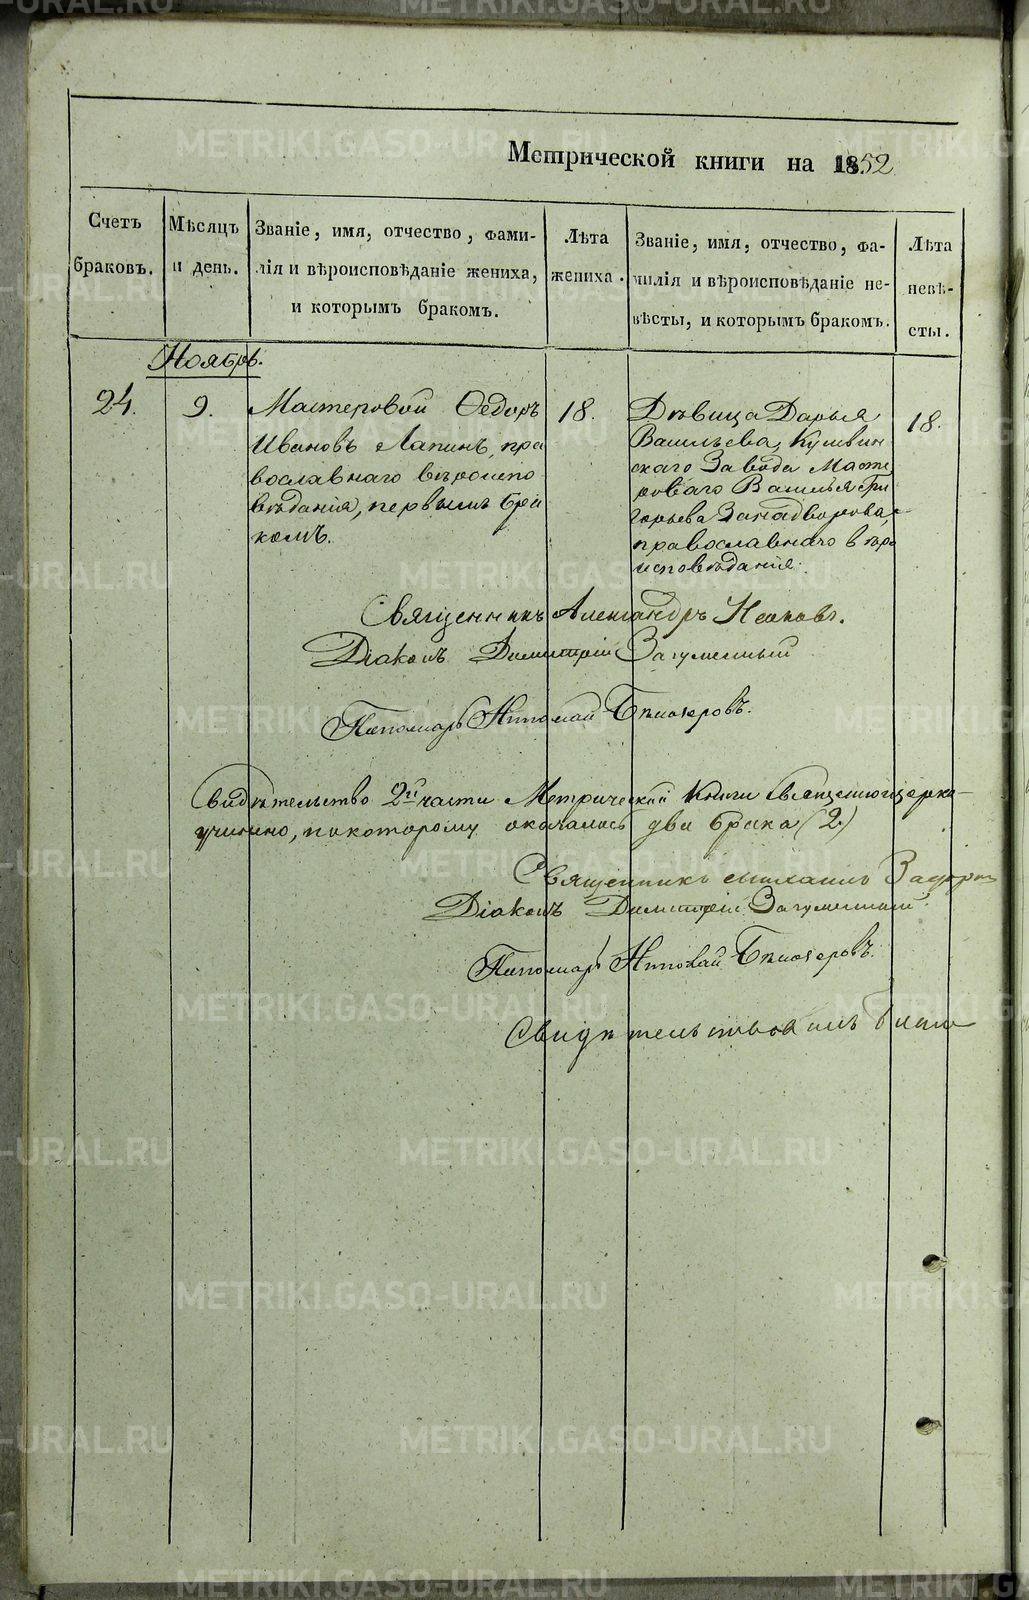 Метрической книги на 1852
Счетъ браковъ.
Мѣсяцъ и день.
Званіе, имя, отчество, фамилія и вѣроисповѣданіе жениха, и которымъ бракомъ.
Лѣта жениха.
Званіе, имя, отчество, фамилія и вѣроисповѣданіе невѣсты, и которымъ бракомъ.
Лѣта невѣсты.
Ноябрь.
24.
9.
Мастеровой Ѳедоръ
Ивановъ Лапинъ, пра
вославнаго вѣроиспо
вѣданія, первымъ бра
комъ.
18.
Дѣвица Дарья
Васильева, Кушвин
скаго Завода Масте
роваго Василья Гри
горьева Занадворова,
православнаго вѣро
исповѣданія.
18.
Священникъ Александръ
Діаконъ Димитрій Загуменный
Пономарь Николай
Свидѣтельство 2й части Метрической Книги церкви
учинено, по которому оказалось два брака (2)
Священникъ Михаилъ
Діаконъ Димитрій Загуменный
Пономарь Николай
Свидѣтельствовалъ Благо
METRIKI.GASO-URAL.RU